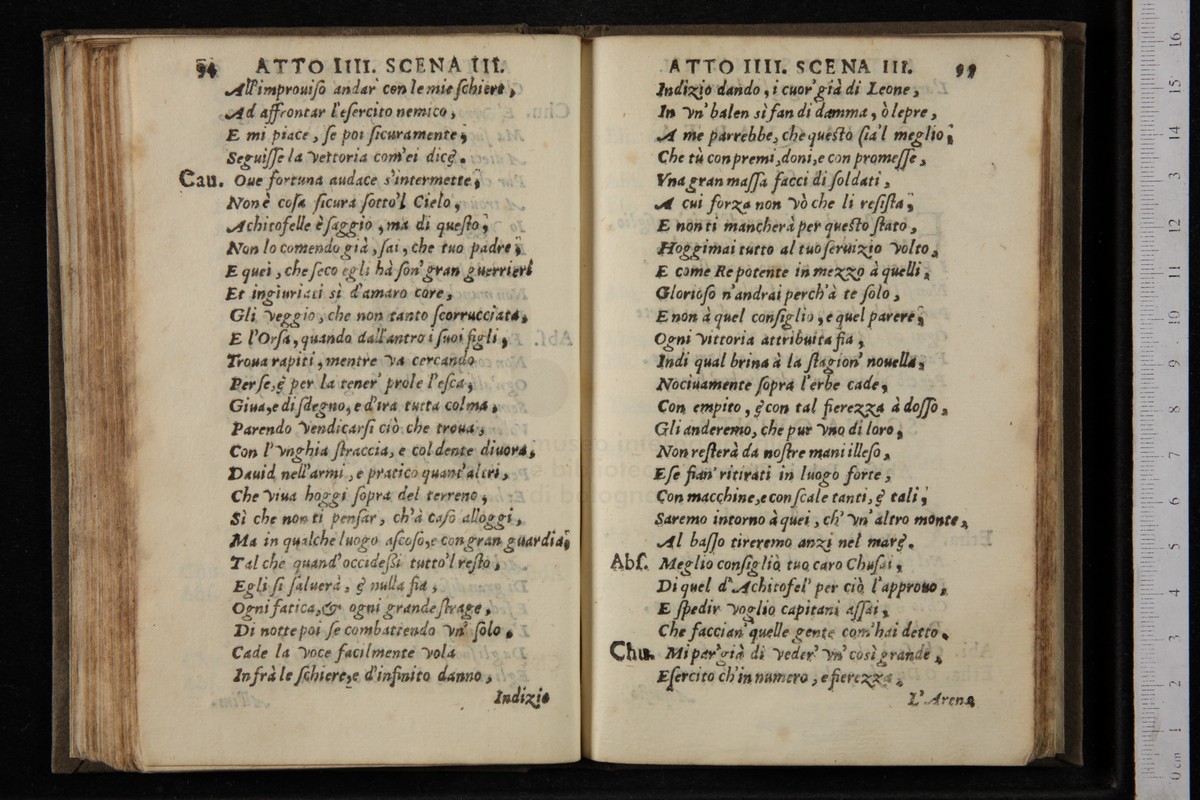 94 ATTO IIII. SCENA III.
All'improuiſo andar con le mie ſchiere,
Ad affrontar l'eſercito nemico,
E mi piace, ſe poi ſicuramente;
Seguiſſe la vettoria com'ei dice.
Cau. Oue fortuna audace s'intermette;
Non è coſa ſicura ſotto'l Cielo,
Achitofelle è ſaggio, ma di queſto;
Non lo comendo già, ſai, che tuo padre;
E quei, che ſeco egli hà ſon' gran guerrieri
Et ingiuriati sì d'amaro core,
Gli veggio, che non tanto ſcorrucciata,
E l'Orſa, quando dall'antro i ſuoi figli,
Troua rapiti, mentre va cercando
Per ſe, ę per la tener' prole l'eſca,
Giua, e di ſdegno, e d'ira tutta colma,
Parendo vendicarſi ciò che troua,
Con l'vnghia ſtraccia, e col dente diuora,
Dauid nell'armi, e pratico quant'altri,
Che viua hoggi ſopra del terreno,
Sì che non ti penſar, ch'à caſo alloggi,
Ma in qualche luogo aſcoſo, e con gran guardia;
Tal che quand'occideſſi tutto'l reſto,
Egli ſi ſaluerà, ę nulla fia,
Ogni fatica, & ogni grande ſtrage,
Di notte poi ſe combattendo vn' ſolo.
Cade la voce facilmente vola
Infrà le ſchiere, e d'infinito danno,
Indizio
ATTO IIII. SCENA III. 99
Indizio dando, i cuor' già di Leone,
In vn' balen sì fan di damma, ò lepre,
A me parrebbe, che queſto ſia'l meglio;
Che tù con premi, doni, e con promeſſe,
Vna gran maſſa facci di ſoldati,
A cui forza non vò che li reſiſta;
E non ti mancherà per queſto ſtato,
Hoggimai tutto al tuo ſeruizio volto,
E come Re potente in mezzo à quelli,
Glorioſo n'andrai perch'à te ſolo,
E non à quel conſiglio, e quel parere;
Ogni vittoria attribuita fia,
Indi qual brina à la ſtagion' nouella,
Nociuamente ſopra l'erbe cade,
Con empito, ę con tal fierezza à doſſo,
Gli anderemo, che pur vno di loro,
Non reſterà da noſtre mani illeſo,
E ſe fian' ritirati in luogo forte,
Con macchine, e con ſcale tanti, ę tali;
Saremo intorno à quei, ch'vn' altro monte,
Al baſſo tireremo anzi nel mare.
Abſ. Meglio conſigliò tuo caro Chuſai,
Di quel d'Achitofel' per ciò l'approuo,
E ſpedir voglio capitani aſſai,
Che faccian' quelle gente com'hai detto.
Chu. Mi par' già di veder' vn' così grande,
Eſercito ch'in numero, e fierezza,
L'Arena